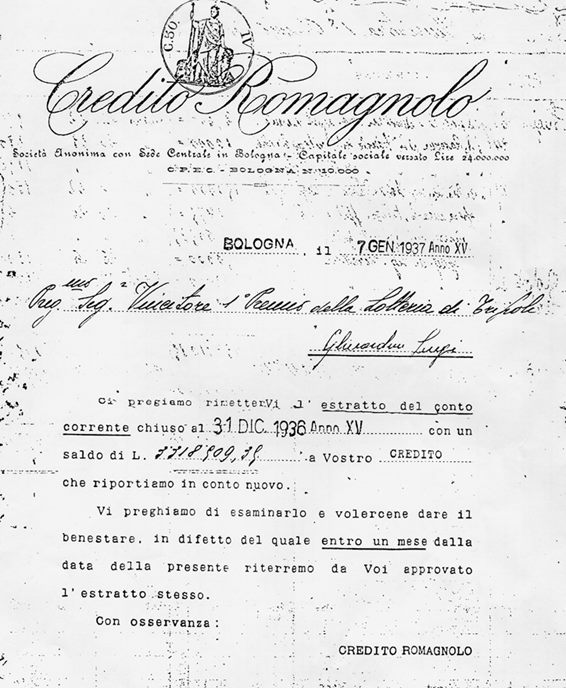 C. 50. IV
Credito Romagnolo
Società Anonima con Sede Centrale in Bologna - Capitale sociale versato Lire 24.000.000
C.P.E.C. - BOLOGNA N. 10.000
BOLOGNA, il 7 GEN. 1937 Anno XV
Preg.mo Sig. Vincitore 1° Premio della Lotteria di Tripoli
Gherardini Luigi
Ci pregiamo rimetterVi l'estratto del conto
corrente chiuso al 31 DIC. 1936 Anno XV con un
saldo di L. a Vostro CREDITO
che riportiamo in conto nuovo.
Vi preghiamo di esaminarlo e volercene dare il
benestare, in difetto del quale entro un mese dalla
data della presente riterremo da Voi approvato
l'estratto stesso.
Con osservanza:
CREDITO ROMAGNOLO